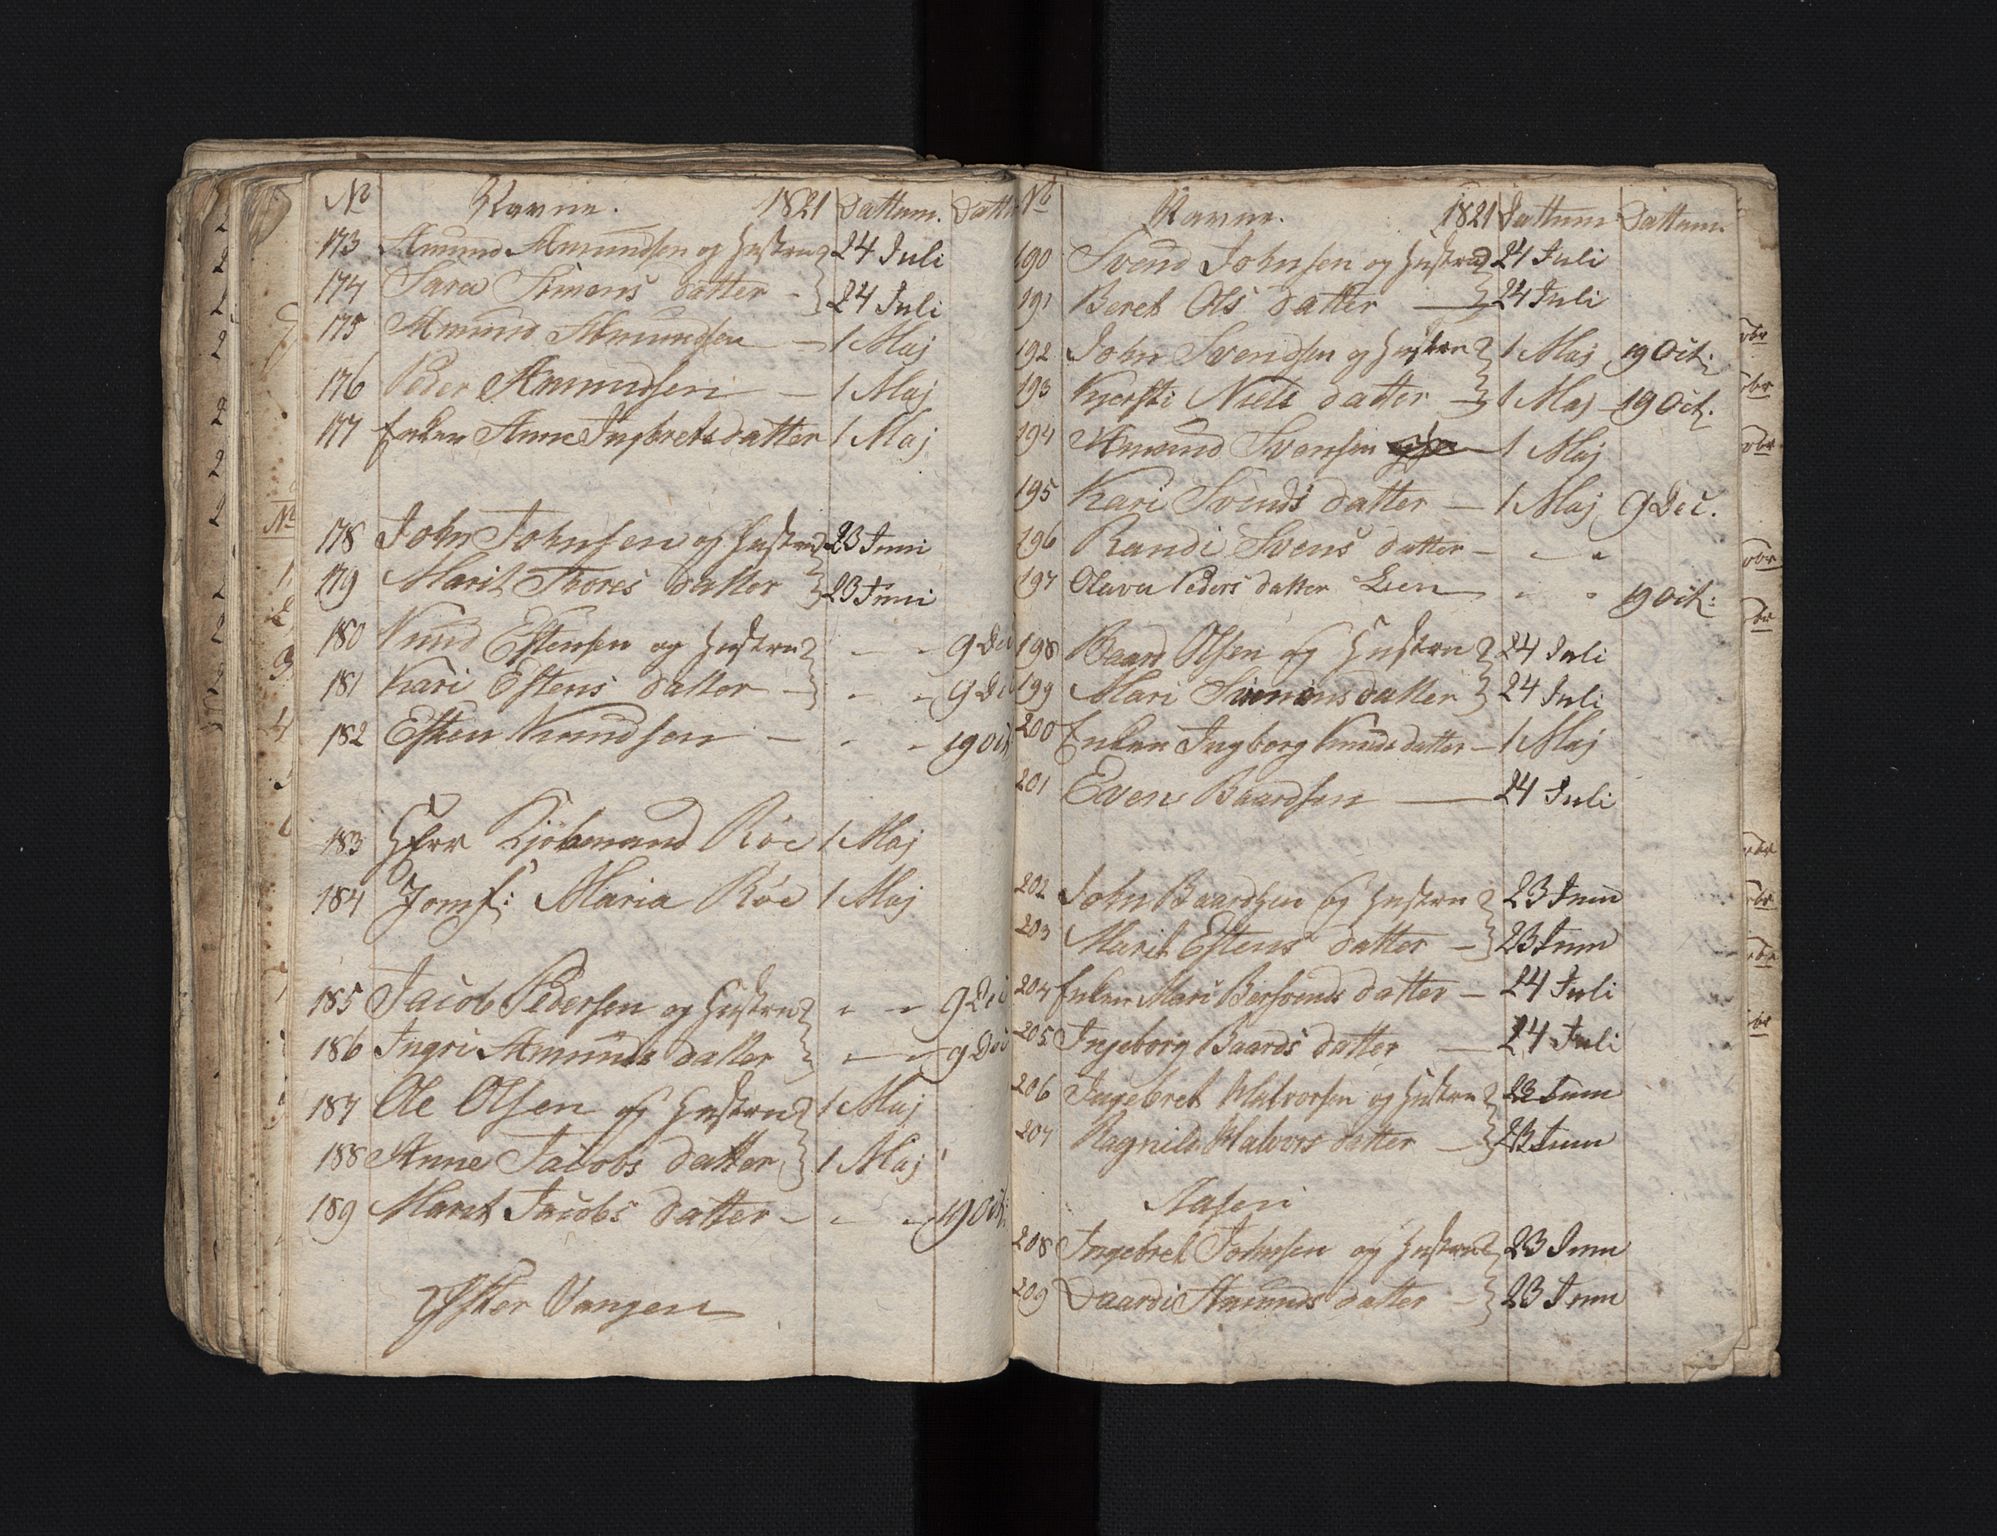 No Navne. 1821 Dattum. Datt
173 Amund Amundsen og Hustru 24 Juli
174 Sara Simons datter - 24 Juli
175 Amund Amundsen - 1 Maj
176 Peder Amundsen - 1 Maj
177 Enken Anne Ingbrets datter 1 Maj
178 John Johnsen og Hustru 23 Juni
179 Marit Thores datter 23 Juni
180 Knud Estensen og Hustru - - 9 Dec
181 Kari Estens datter - - - 9 Dec
182 Esten Knudsen - - - 19 Oct
183 Herr Kjöbmand Röe 1 Maj
184 Jomf: Maria Röe 1 Maj
185 Jacob Pedersen og Hustru - - 9 Dec
186 Ingri Amunds datter - - 9 Dec
187 Ole Olsen og Hustru 1 Maj
188 Anne Jacobs datter 1 Maj
189 Marit Jacobs datter - - - 19 Oct:
Øster Vangen
No Navne. 1821 Dattum Dattum.
190 Svend Johnsen og Hustru 24 Juli
191 Beret Ols datter - 24 Juli
192 John Svendsen og Hustru 1 Maj 19 Oct:
193 Kjersti Niels datter - 1 Maj - 19 Oct.
194 Amund Svensen - 1 Maj
195 Kari Svends datter - 1 Maj 9 Dec.
196 Randi Svens datter - - "
197 Olava Peders datter Lien - " " 19 Oct:
198 Baard Olsen og Hustru 24 Juli
199 Mari Simons datter 24 Juli
200 Enken Ingborg Knuds datter - 1 Maj
201 Even Baardsen - 24 Juli
202 John Baardsen og Hustru 23 Juni
203 Marit Estens datter - 23 Juni
204 Enken Mari Bersvends datter - 24 Juli
205 Ingeborg Baards datter - 24 Juli
206 Ingebret Halvorsen og Hustru 23 Juni
207 Ragnild Halvors datter - 23 Juni
Aasen
208 Ingebret Johnsen og Hustru 23 Juni
209 Daardi Amunds datter - 23 Juni